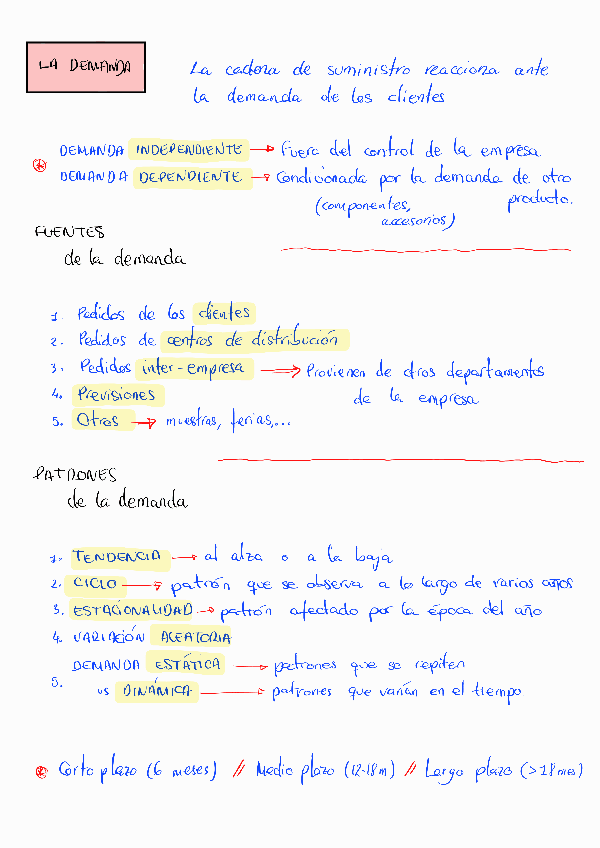 LA DEMANDA
La cadena de suministro reacciona ante
la demanda de los clientes
DEMANDA INDEPENDIENTE → Fuera del control de la empresa.
DEMANDA DEPENDIENTE → Condicionada por la demanda de otro
producto.
(componentes,
accesorios)
FUENTES
de la demanda
1. Pedidos de los clientes
2. Pedidos de centros de distribución
3. Pedidos inter-empresa → Provienen de otros departamentos
de la empresa
4. Previsiones
5. Otros → muestras, ferias,...
PATRONES
de la demanda
1. TENDENCIA → al alza o a la baja
2. CICLO → patrón que se observa a lo largo de varios años
3. ESTACIONALIDAD → patrón afectado por la época del año
4. VARIACIÓN ALEATORIA
DEMANDA ESTÁTICA → patrones que se repiten
5.
vs DINÁMICA → patrones que varían en el tiempo
Corto plazo (6 meses) // Medio plazo (12-18m) // Largo plazo (>18 mes)